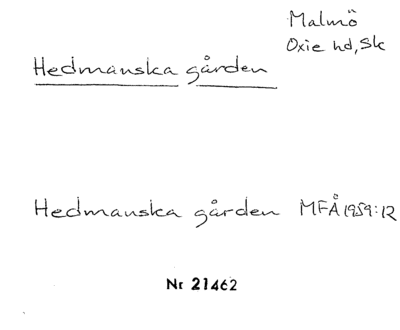 Malmö
Oxie hd, Sk
Hedmanska gården
Hedmanska gården MFÅ 1959:12
Nr 21462